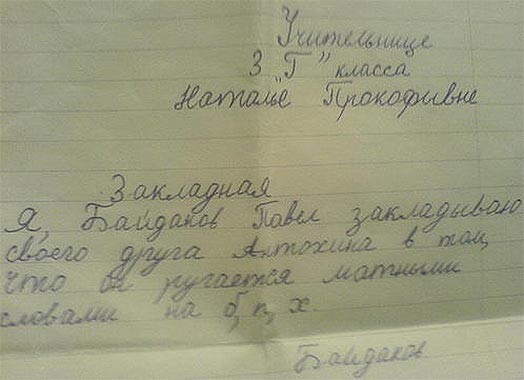 Учительнице
3 "Г" класса
Наталье Прокофывне
Закладная
Я, Байданов Павел закладываю
своего друга Алтохина в том,
что он ругается матными
словами на б, п, х.
Байданов